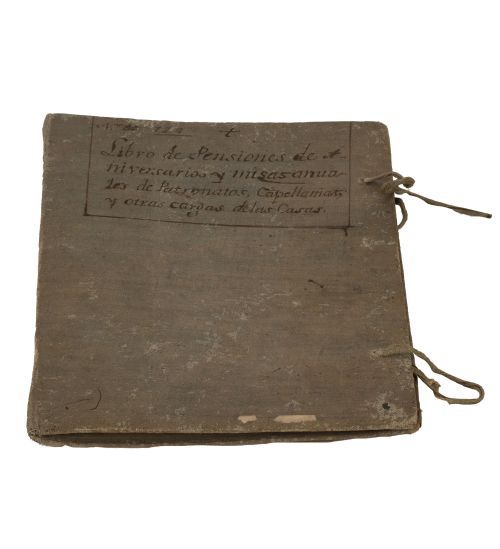 ✝
Libro de Pensiones de A-
niversarios y misas anua-
les de Patronatos, Capellanias,
y otras cargas de las Casas.